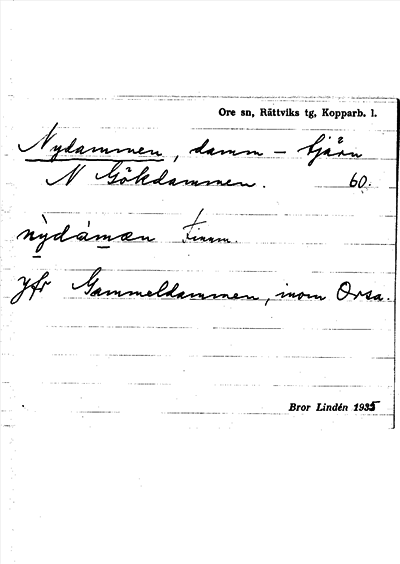 Ore sn, Rättviks tg, Kopparb. l.
Nydammen, damm - tjärn
N Gökdammen. 60.
nỳdámæn Finnm.
Jfr Gammeldammen, inom Orsa.
Bror Lindén 1935